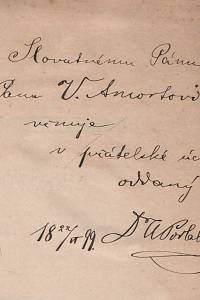 Slovutnému Pánu
Panu V. Amortovi
věnuje
v přátelské úc
oddaný
18 22/IV 99.